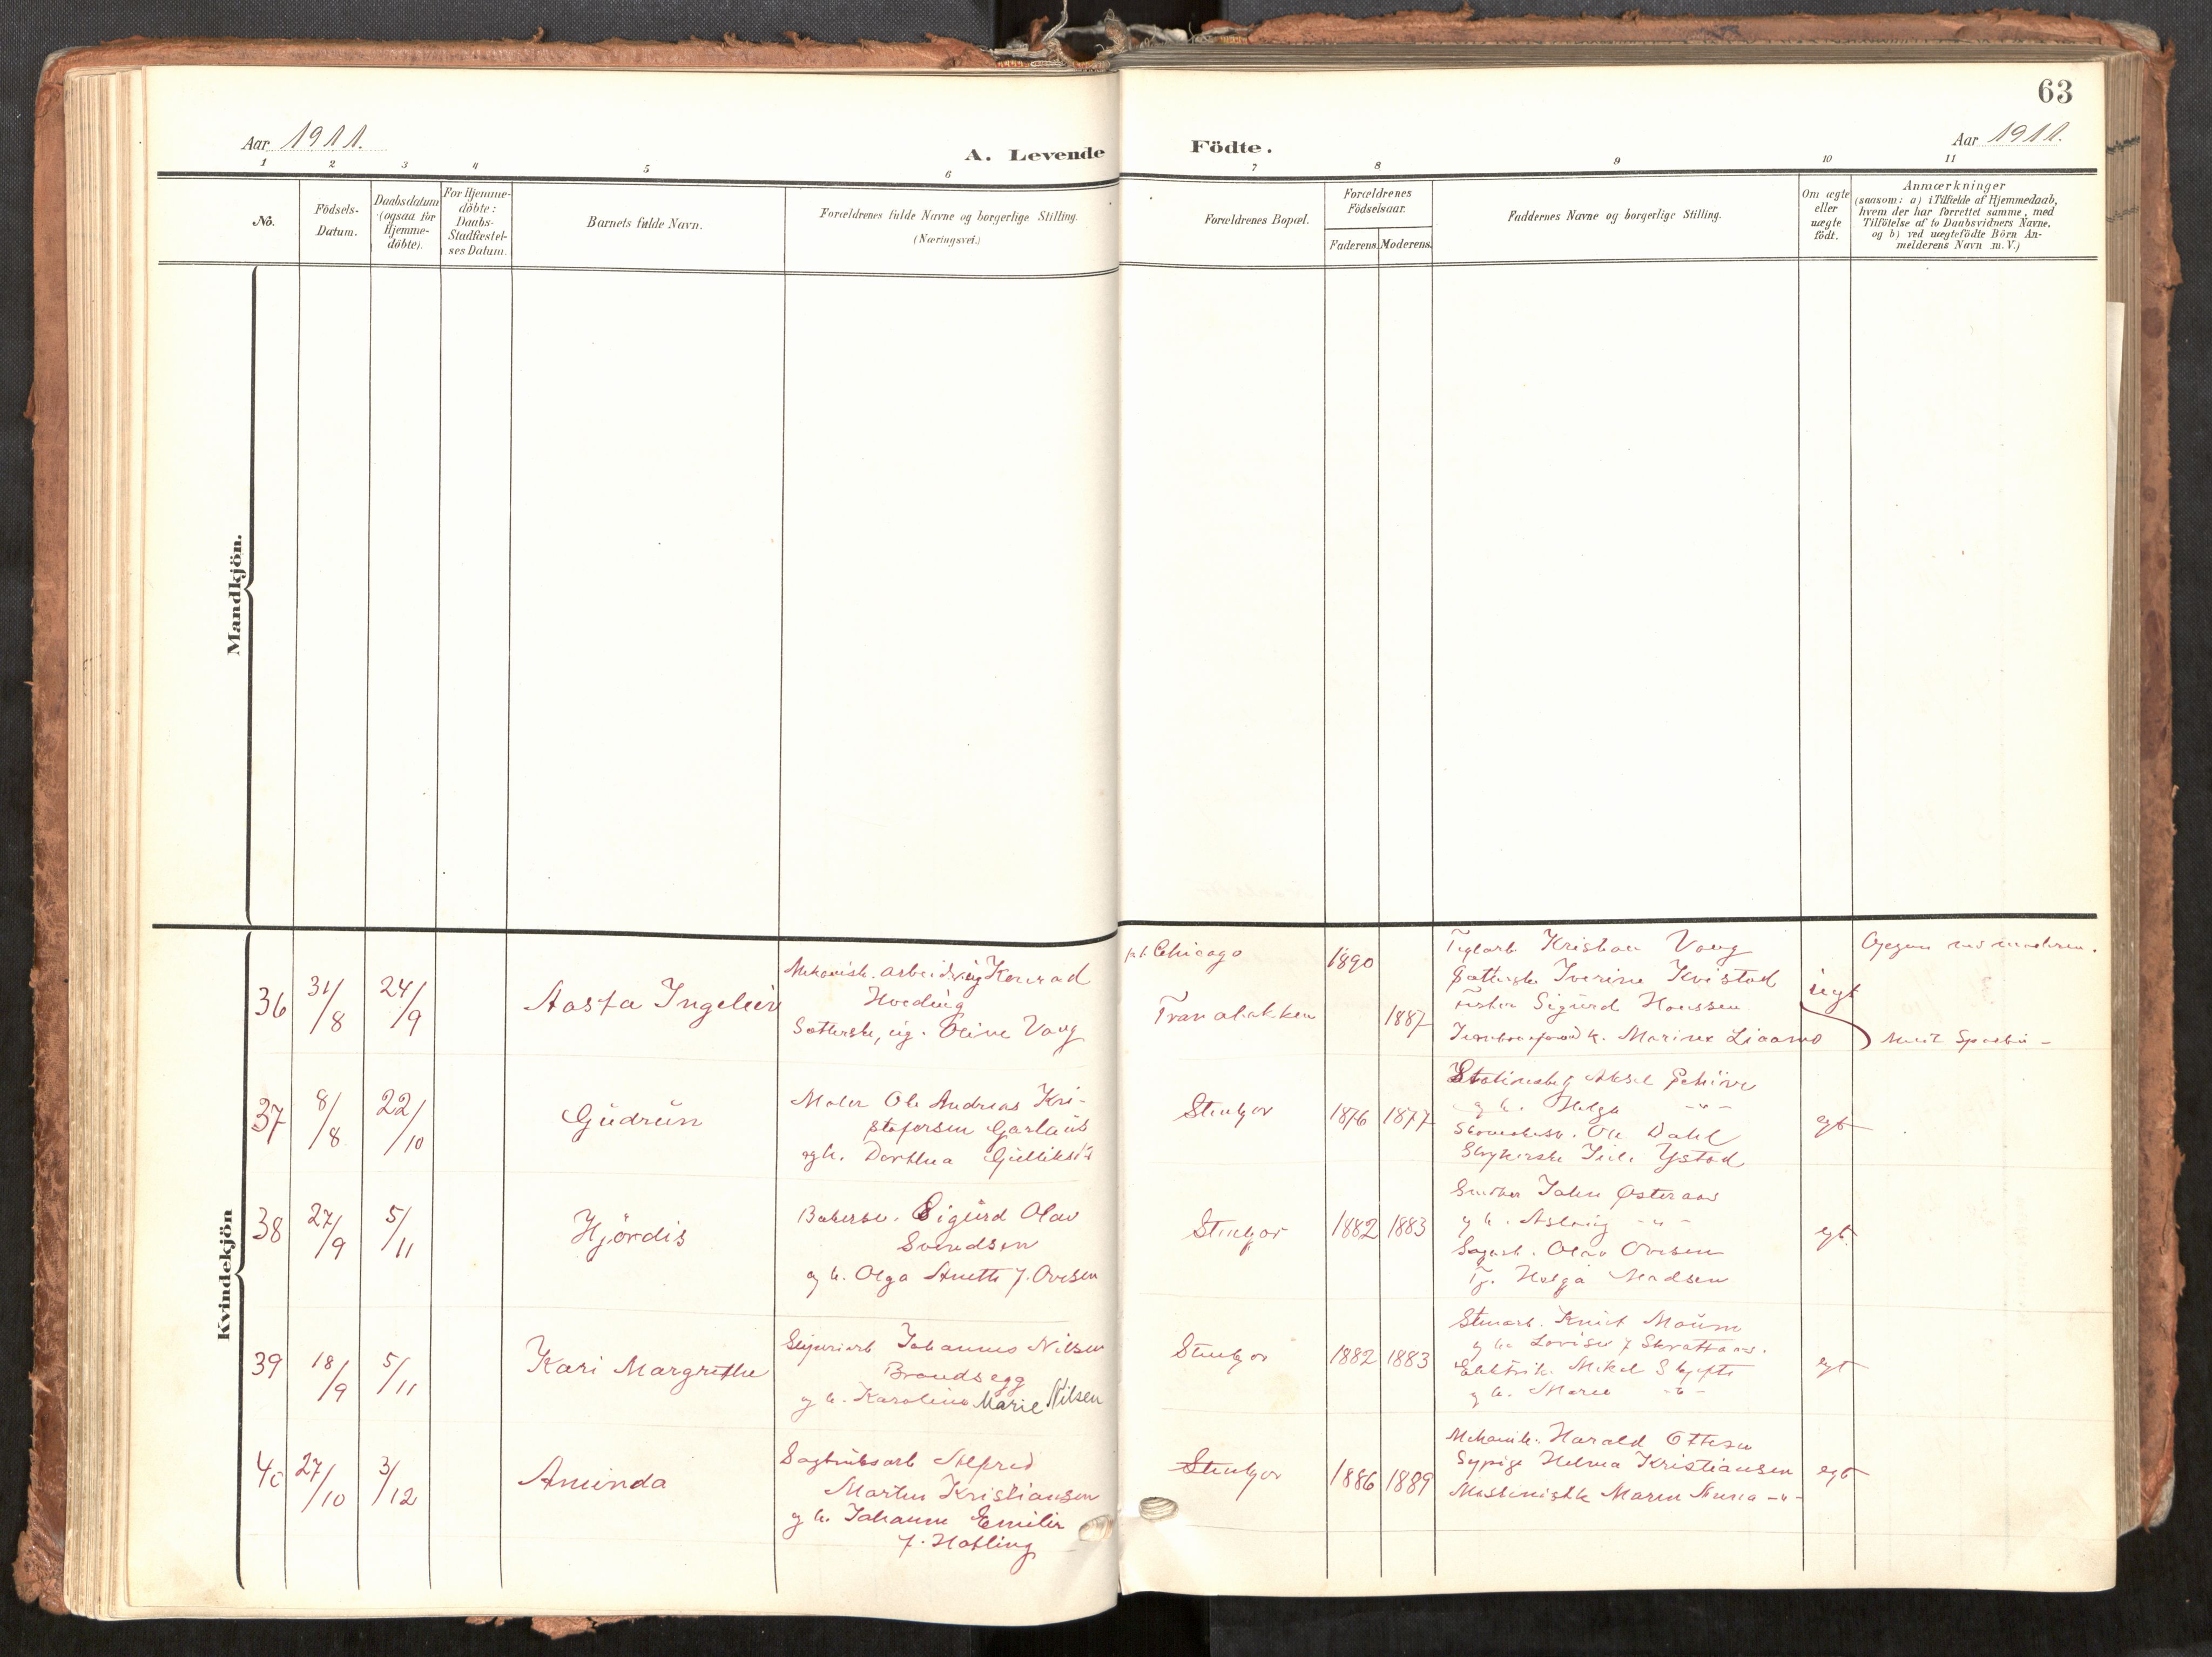 63
Aar 1911.
A. Levende Födte.
Aar 1911.
1 2 3 4 5 6 7 8 9 10 11
No.
Födsels-Datum.
Daabsdatum (ogsaa for Hjemme-döbte).
For Hjemme-döbte: Daabs-Stadfæstel-ses Datum.
Barnets fulde Navn.
Forældrenes fulde Navne og borgerlige Stilling.
(Næringsvei.)
Forældrenes Bopæl.
Forældrenes Födselsaar.
Faderens. Moderens.
Faddernes Navne og borgerlige Stilling.
Om ægte eller uægte födt.
Anmærkninger
(saasom: a) i Tilfælde af Hjemmedaab,
hvem der har forrettet samme, med
Tilföielse af to Daabsvidners Navne,
og b) ved uægtefödte Börn An-
melderens Navn m. V.)
Mandkjön.
Kvindekjön
36 31/8 24/9 Aasta Ingeleiv
Mekanisk. arbeider, ug. Konrad
Hveding
ug. Oline Vaag
p.t. Chicago 1890
Tranabakken 1887
Teglarb Kristian Vaag
Iverine Kvistad
Sigurd Hanssen
Marine Liaamo
uegt
37 8/8 22/10 Gudrun
Maler Ole Andreas Kri-
stofersen Garlaus
ogh. Dorthea
Stenkjer 1876 1877
Aksel Schive
g h. Helga -"-
Ole Dahl
Ystad
egt
38 27/9 5/11 Hjördis
Bakersv. Sigurd Olav
Svendsen
og h. Olga Anette f. Ovesen
Stenkjer 1882 1883
Smeder John Østeraas
g h. Aslaug -"-
Sagarb. Olav Ovesen
Tj. Helga Madsen
egt.
39 18/9 5/11 Kari Margrethe
Johannes Nilsen
Brandsegg
g h. Karoline Marie Nilsen
Stenkjer 1882 1883
Stenarb. Knut Maum
g h. Lovise f
Elektrik. Mikal Skjefte
g h. Marie -"-
egt
40 27/10 3/12 Aminda
Sagbruksarb Alfred
Martin Kristiansen
g h. Johanne Emilie
f. Hatling
Stenkjer 1886 1889
Mekanik. Harald Ottesen
Sypige Helma Kristiansen
Maren Anna -"-
egt